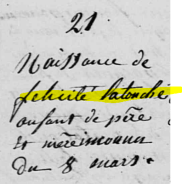 21
Naissance de
felicité Latouche
enfant de père
et mère inconnu
du 8 mars